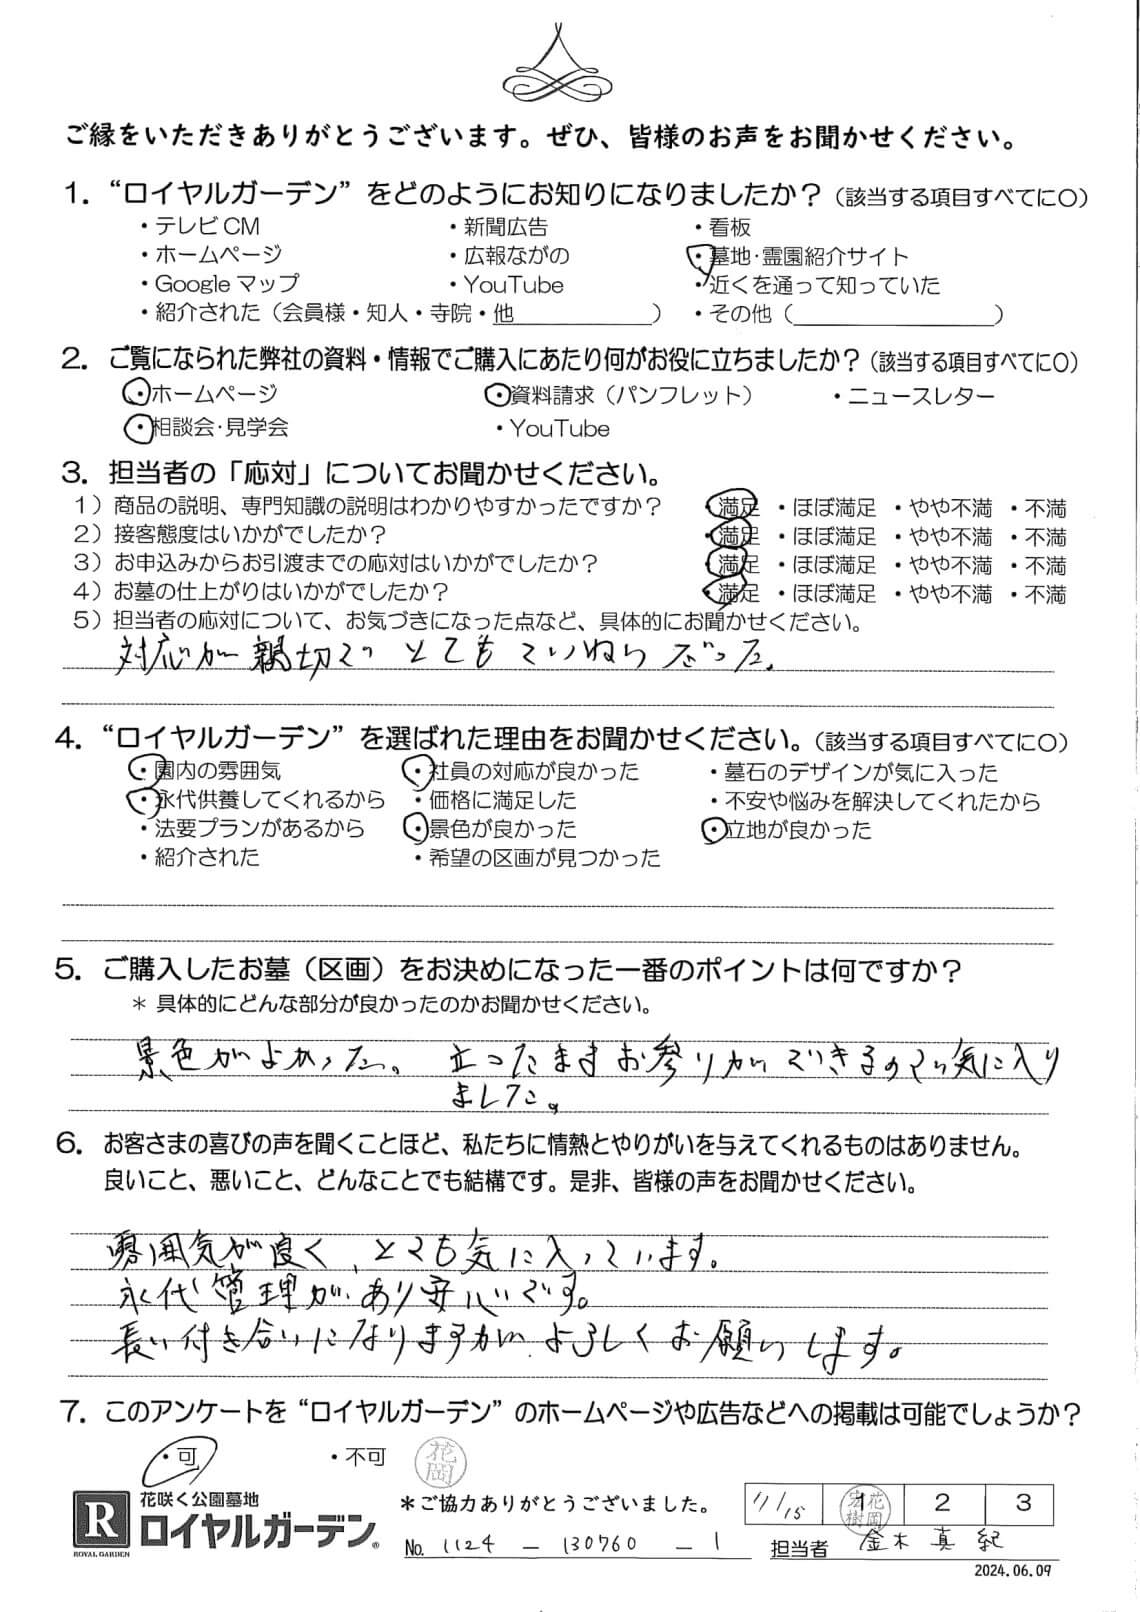 ご縁をいただきありがとうございます。ぜひ、皆様のお声をお聞かせください。
1．“ロイヤルガーデン”をどのようにお知りになりましたか？（該当する項目すべてに○）
・テレビCM ・新聞広告 ・看板
・ホームページ ・広報ながの ・墓地・霊園紹介サイト
・Googleマップ ・YouTube ・近くを通って知っていた
・紹介された（会員様・知人・寺院・他　　　　　） ・その他（　　　　　　　）
2．ご覧になられた弊社の資料・情報でご購入にあたり何がお役に立ちましたか？（該当する項目すべてに○）
・ホームページ ・資料請求（パンフレット） ・ニュースレター
・相談会・見学会 ・YouTube
3．担当者の「応対」についてお聞かせください。
1）商品の説明、専門知識の説明はわかりやすかったですか？ ・満足 ・ほぼ満足 ・やや不満 ・不満
2）接客態度はいかがでしたか？ ・満足 ・ほぼ満足 ・やや不満 ・不満
3）お申込みからお引渡までの応対はいかがでしたか？ ・満足 ・ほぼ満足 ・やや不満 ・不満
4）お墓の仕上がりはいかがでしたか？ ・満足 ・ほぼ満足 ・やや不満 ・不満
5）担当者の応対について、お気づきになった点など、具体的にお聞かせください。
対応が親切で とても ていねい だった。
4．“ロイヤルガーデン”を選ばれた理由をお聞かせください。（該当する項目すべてに○）
・園内の雰囲気 ・社員の対応が良かった ・墓石のデザインが気に入った
・永代供養してくれるから ・価格に満足した ・不安や悩みを解決してくれたから
・法要プランがあるから ・景色が良かった ・立地が良かった
・紹介された ・希望の区画が見つかった
5．ご購入したお墓（区画）をお決めになった一番のポイントは何ですか？
＊具体的にどんな部分が良かったのかお聞かせください。
景色がよかった。 立ったままお参りができるので気に入り
ました。
6．お客さまの喜びの声を聞くことほど、私たちに情熱とやりがいを与えてくれるものはありません。
良いこと、悪いこと、どんなことでも結構です。是非、皆様の声をお聞かせください。
雰囲気が良く、とても気に入っています。
永代管理があり安心です。
長い付き合いになりますが、よろしくお願いします。
7．このアンケートを“ロイヤルガーデン”のホームページや広告などへの掲載は可能でしょうか？
・可 ・不可 花岡
R ROYAL GARDEN
花咲く公園墓地
ロイヤルガーデン®
＊ご協力ありがとうございました。
No. 1124 － 130760 － 1
11/15 1 花岡宏樹 2 3
担当者 金木 真紀
2024.06.09